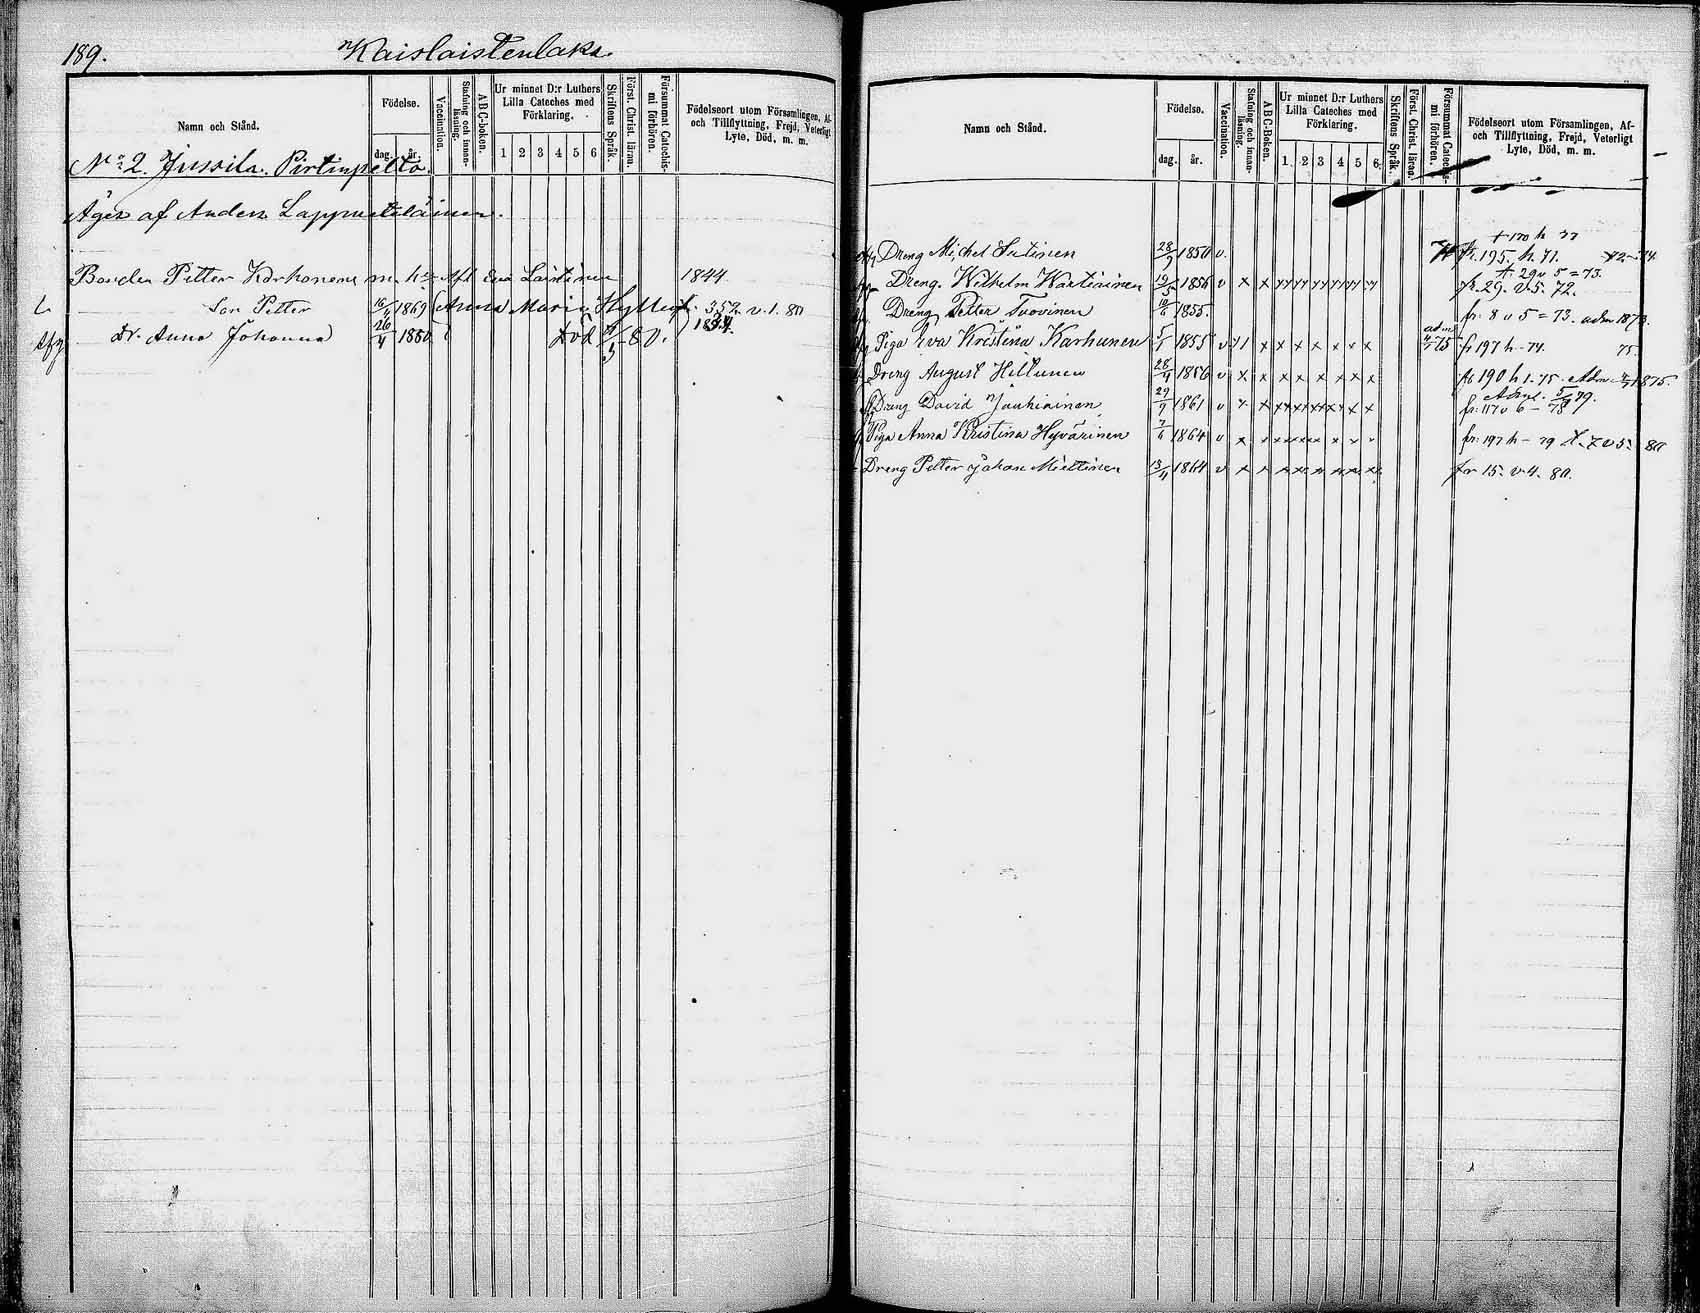 189. Kaislaistenlaks.
Namn och Stånd.
Födelse.
dag. år.
Vaccination.
Stafning och innanläsning.
ABC-boken.
Ur minnet D:r Luthers
Lilla Cateches med
Förklaring.
1 2 3 4 5 6
Skriftens Språk.
Först. Christ. läran.
Försummat Catechismi förhören.
Födelseort utom Församlingen, Af-
och Tillflyttning, Frejd, Veterligt
Lyte, Död, m. m.
No 2. Jussila. Pirtinpelto.
Äges af Anders Lappveteläinen.
Bonden Petter Korhonens m. h. Eva Laitinen 1844
Son Petter 16/4 1869 Anna Maria 352 v. 1. 80
Dr. Anna Johanna 26/4 1880 Död 80. 1834.
Namn och Stånd.
Födelse.
dag. år.
Vaccination.
Stafning och innanläsning.
ABC-Boken.
Ur minnet D:r Luthers
Lilla Cateches med
Förklaring.
1. 2 3 4 5 6
Skriftens Språk.
Först. Christ. läran.
Försummat Catechismi förhören.
Födelseort utom Församlingen, Af-
och Tillflyttning, Frejd, Veterligt
Lyte, Död, m. m.
170 h 77
Dreng Michel Sutinen 28/9 1850 v. fr. 195. h. 71.
29 v 5 = 73.
Dreng. Wilhelm Kartiainen 1856 v x x fr. 29. v. 5. 72.
Dreng Petter Tuovinen 10/6 1855. fr. 8 v 5 = 73. adm 1873.
Piga Eva Kristina Karhunen 5/5 1855 v x x x x x x x adm 75 fr 197 h - 74. 75.
Dreng August Hiltunen 28/4 1856 v x x x x x x x x fr 190 h 1. 75. Adm 1875.
Adm. 79.
Dreng David Jauhiainen 29/9 1861 v x x fr: 117 v 6 - 78
Piga Anna Kristina Hyvärinen 7/6 1864 v x x fr: 197 h - 79 80
Dreng Petter Johan Miettinen 13/4 1864 v x x fr 15. v. 4. 80.